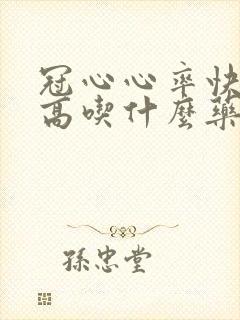 冠心心率快
高喫什麼藥
孫忠堂